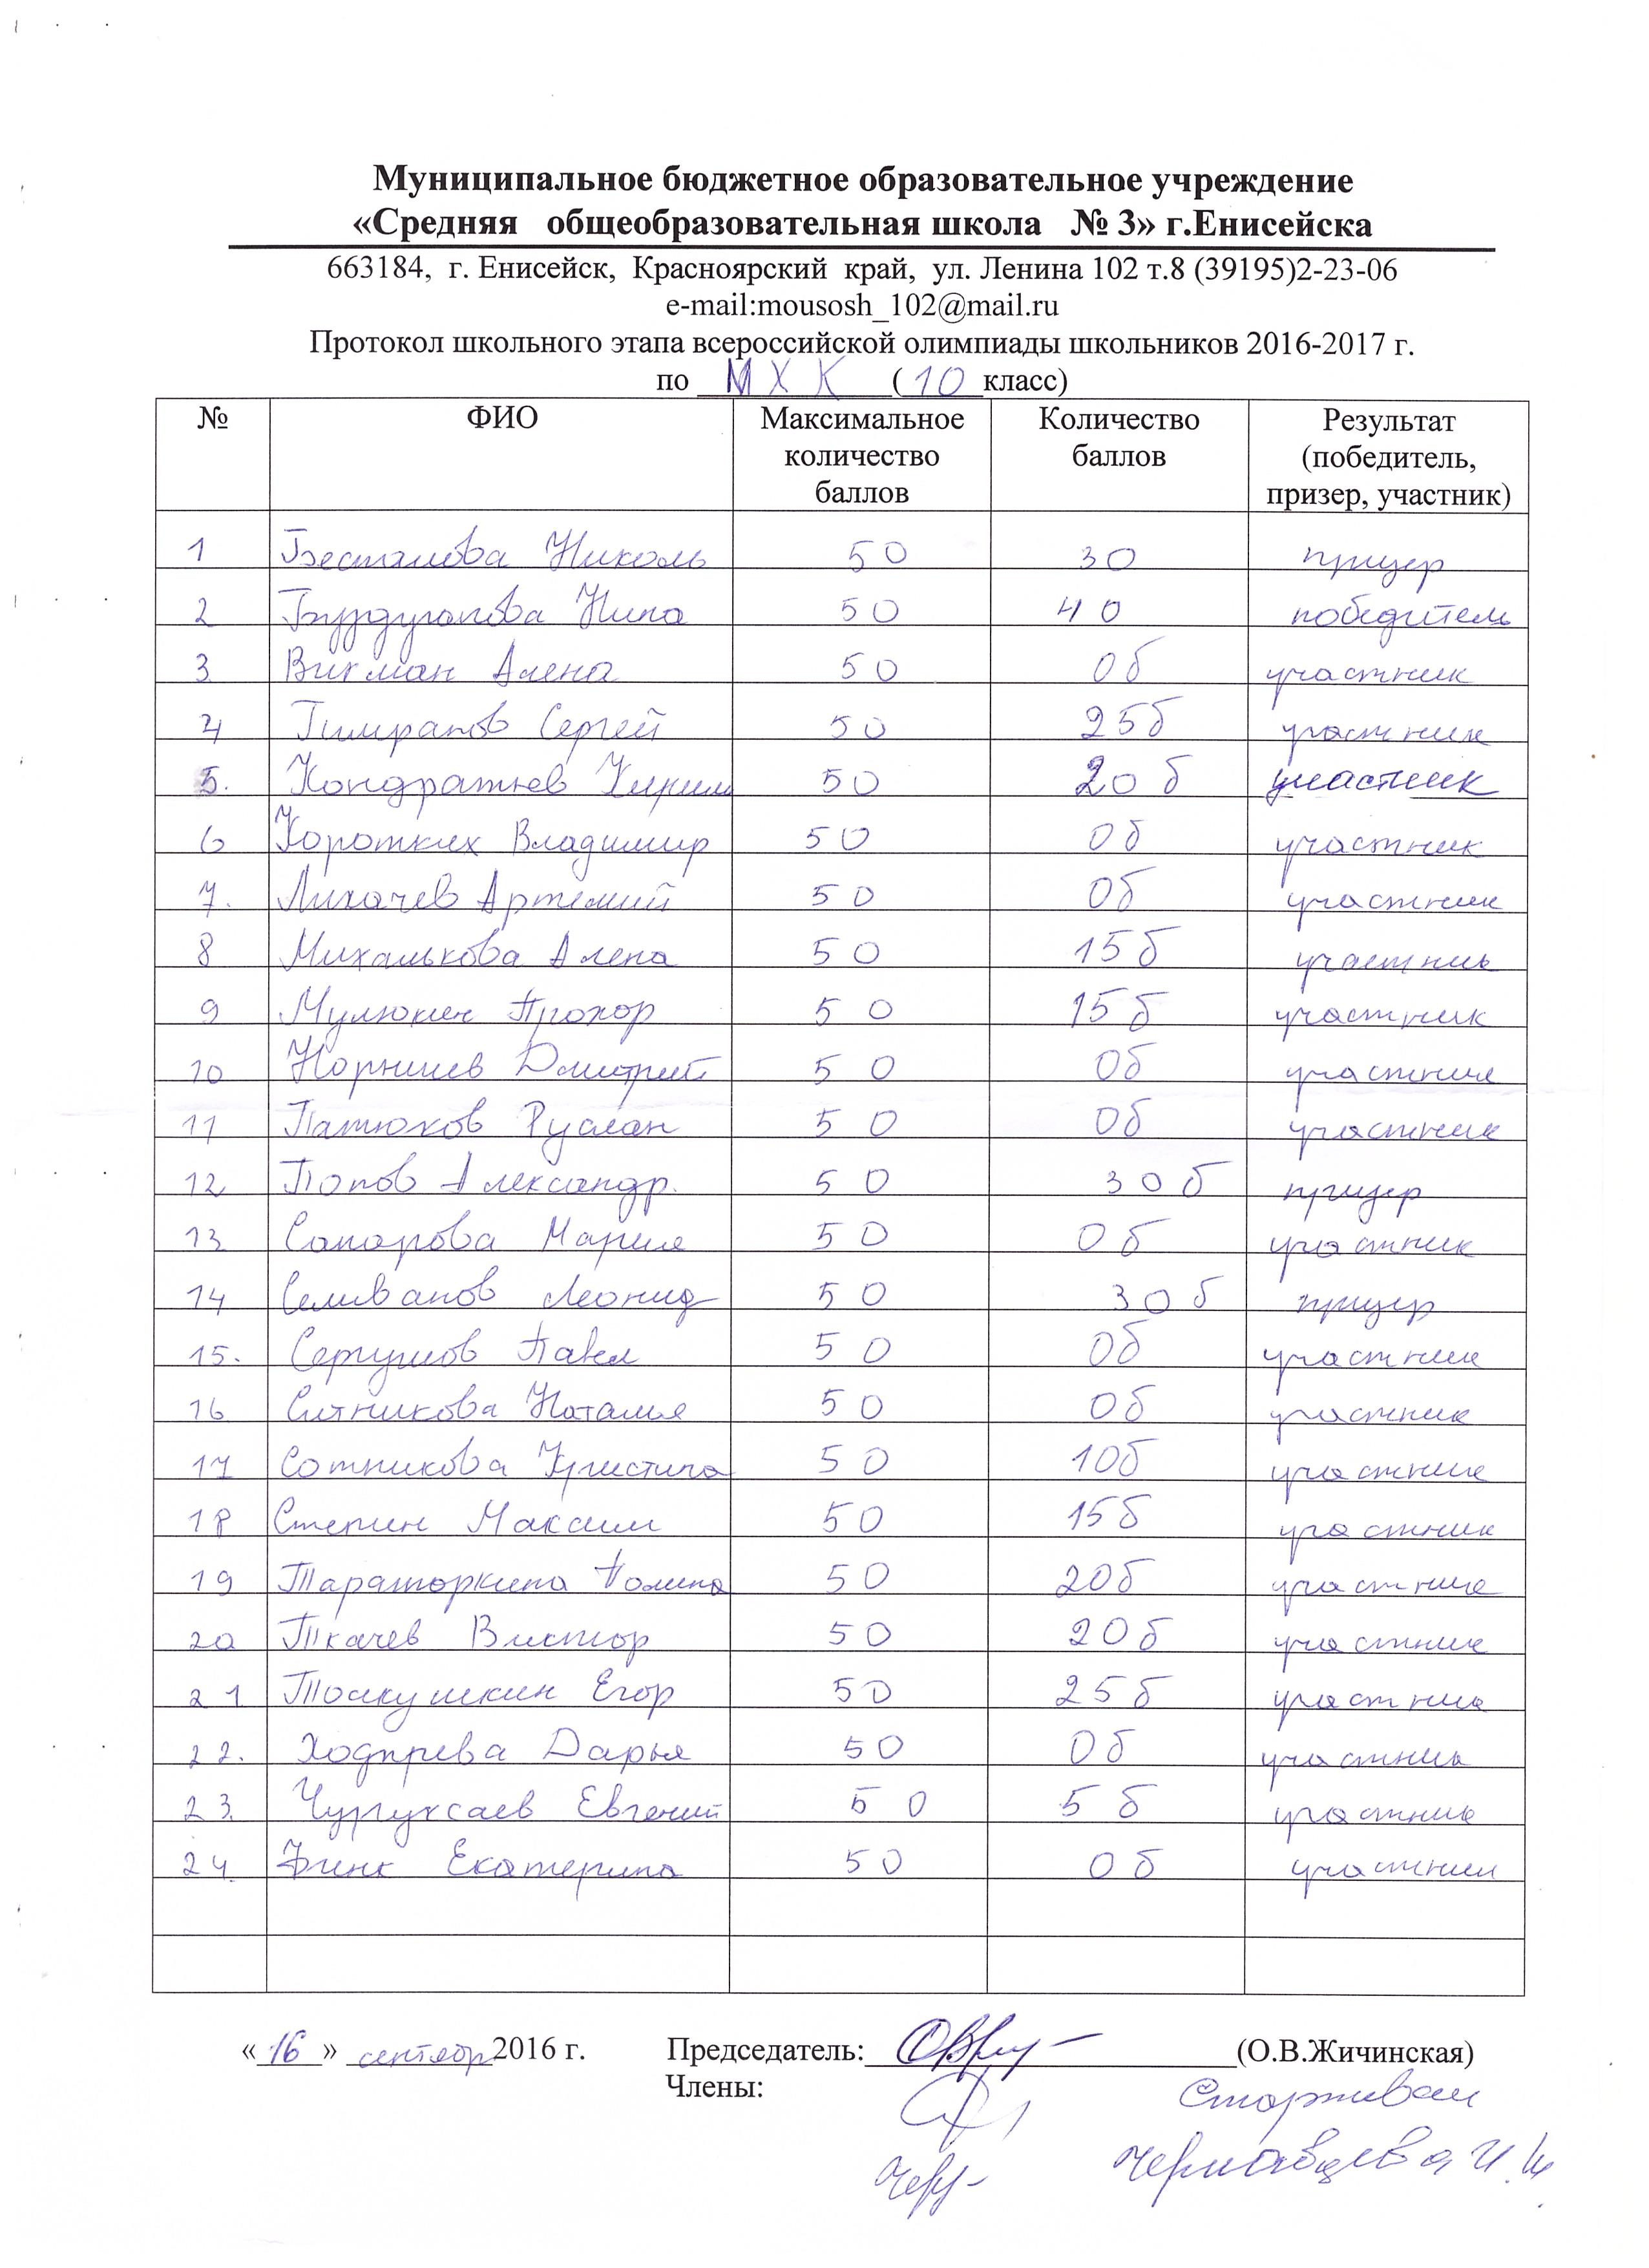 Муниципальное бюджетное образовательное учреждение
«Средняя общеобразовательная школа № 3» г.Енисейска
663184, г. Енисейск, Красноярский край, ул. Ленина 102 т.8 (39195)2-23-06
e-mail:mousosh_102@mail.ru
Протокол школьного этапа всероссийской олимпиады школьников 2016-2017 г.
по МХК (10 класс)
№ ФИО Максимальное количество баллов Количество баллов Результат (победитель, призер, участник)
1 Николь 50 30 призер
2 Нина 50 40 победитель
3 Викман Алена 50 0б участник
4 Сергей 50 25б участник
5. Кондратьев Кирилл 50 20 б участник
6 Коротких Владимир 50 0б участник
7. Лихачев Артемий 50 0б участник
8 Михалькова Алена 50 15б участник
9 Мулюкин Прохор 50 15б участник
10 Дмитрий 50 0б участник
11 Патюков Руслан 50 0б участник
12 Попов Александр. 50 30б призер
13 Сапарова Мария 50 0б участник
14 Селиванов Леонид 50 30б призер
15. Павел 50 0б участник
16 Ситникова Наталья 50 0б участник
17 Сотникова Кристина 50 10б участник
18 Степин Максим 50 15б участник
19 Тараторкина Полина 50 20б участник
20 Ткачев Виктор 50 20б участник
21 Егор 50 25б участник
22. Дарья 50 0б участник
23. Евгений 50 5б участник
24. Финк Екатерина 50 0б участник
«16» сентябр 2016 г. Председатель: (О.В.Жичинская)
Члены: